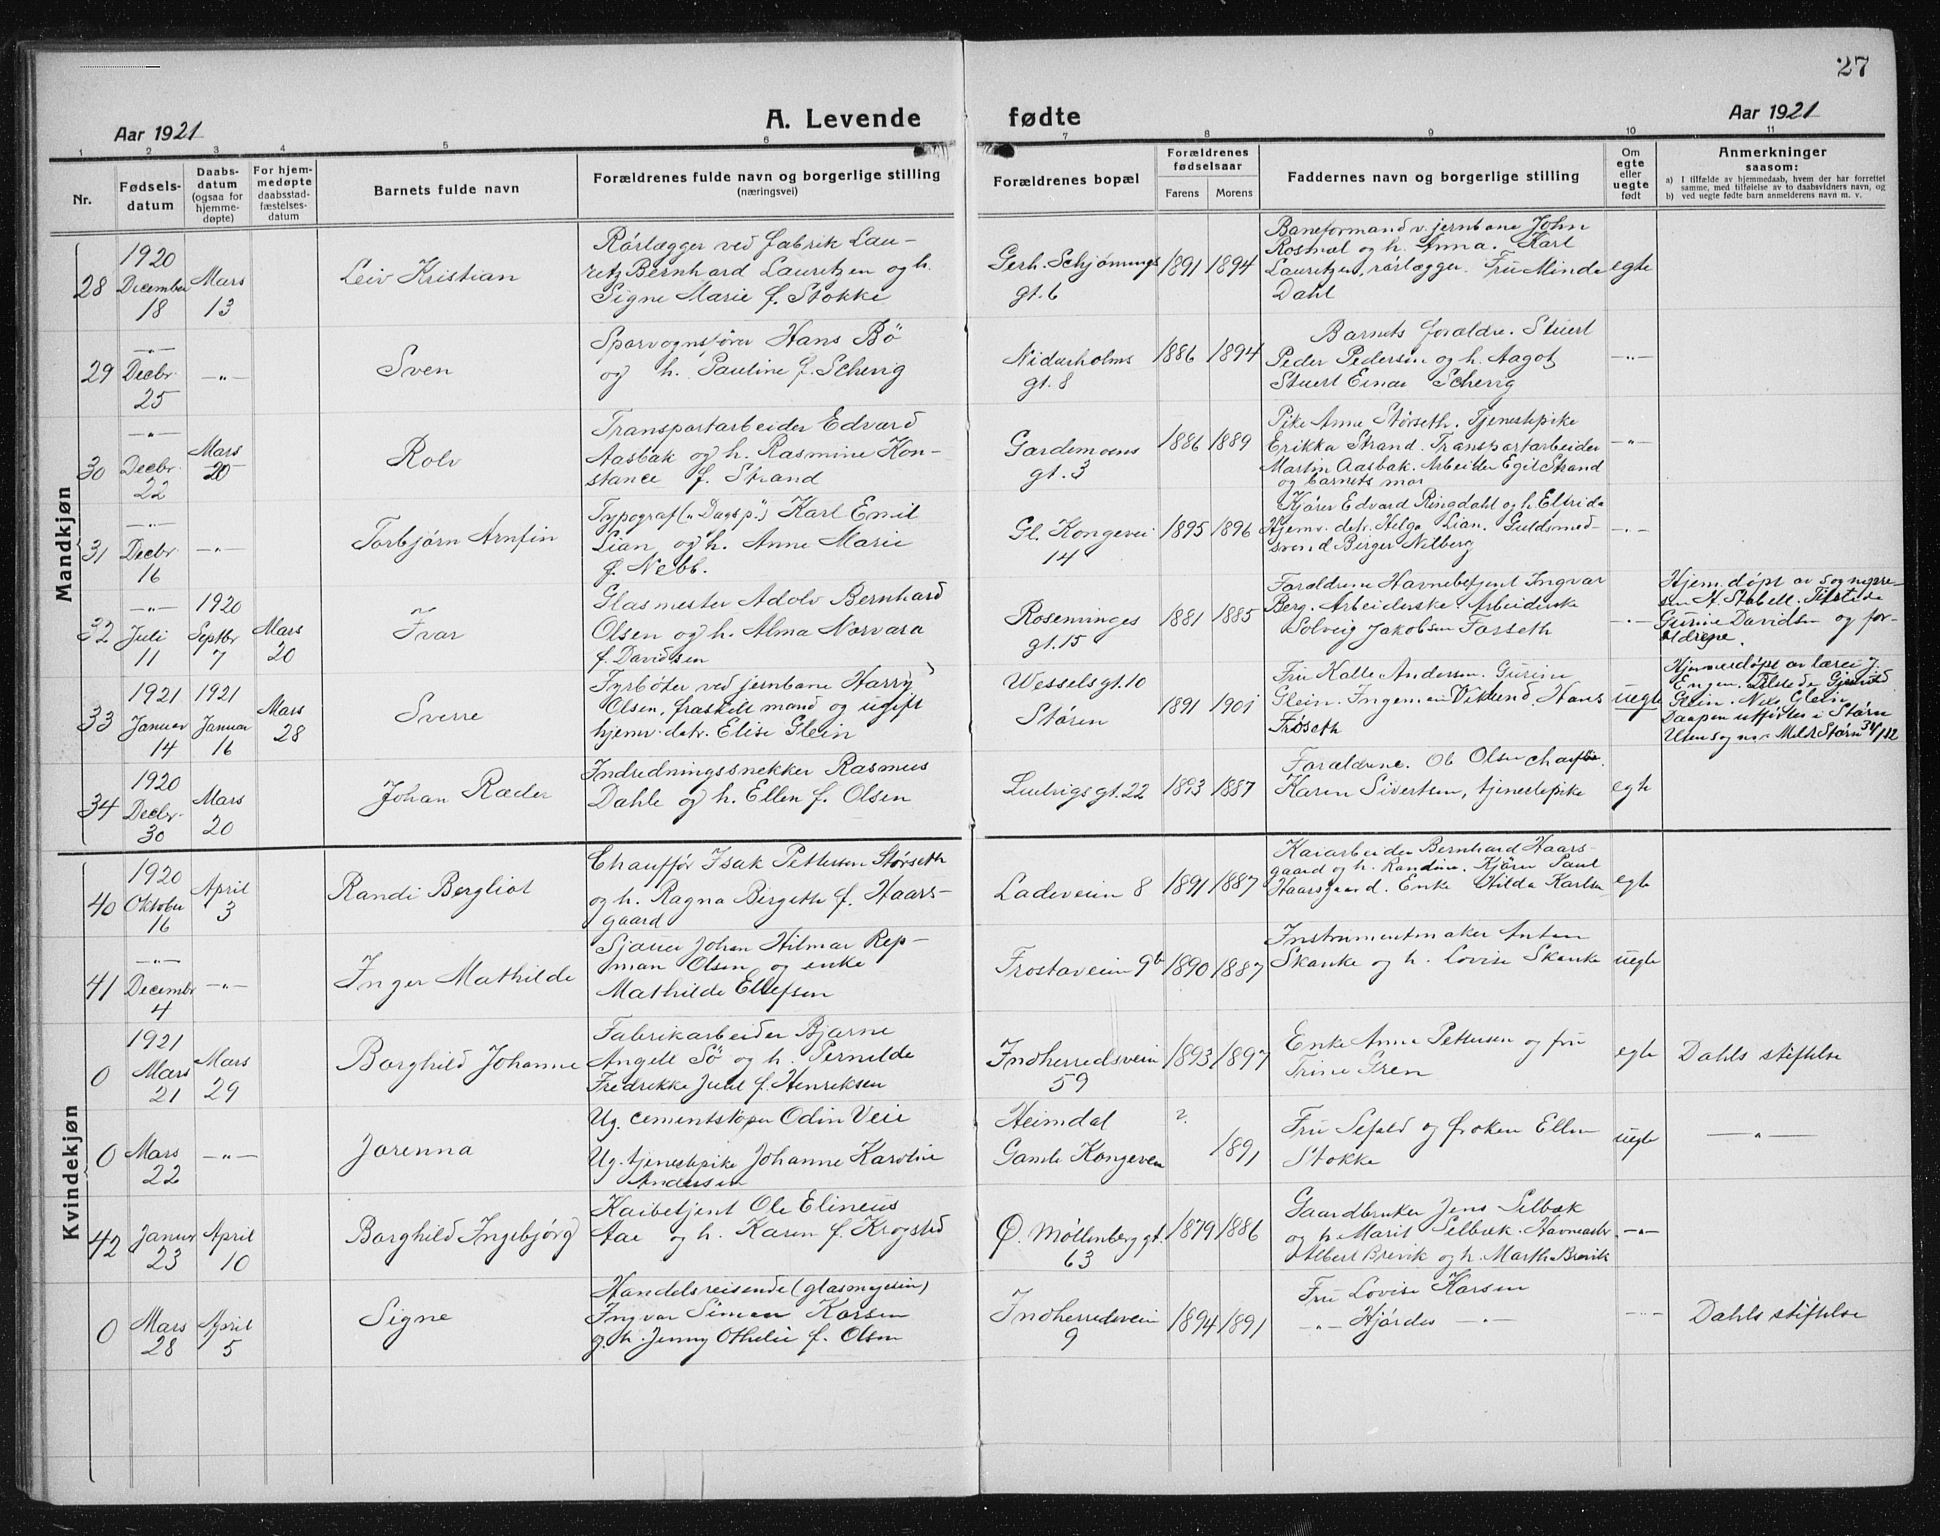 27
Aar 1921
A. Levende fødte
Aar 1921
1 2 3 4 5 6 7 8 9 10 11
Nr.
Fødsels-
datum
Daabs-
datum
(ogsaa for
hjemme-
døpte)
For hjem-
medøpte
daabsstad-
fæstelses-
datum
Barnets fulde navn
Forældrenes fulde navn og borgerlige stilling
(næringsvei)
Forældrenes bopæl
Forældrenes
fødselsaar
Farens Morens
Faddernes navn og borgerlige stilling
Om
egte
eller
uegte
født
Anmerkninger
saasom:
a) I tilfælde av hjemmedaab, hvem der har forrettet
samme, med tilføielse av to daabsvidners navn, og
b) ved uegte fødte barn anmelderens navn m. v.
Mandkjøn
28
1920
December
18
Mars
13
Leiv Kristian
Rørlægger ved fabrik Lau-
ritz Bernhard Lauritzen og h.
Signe Marie f. Stokke
Gerh. Schjønnings
gt. 6
1891 1894
Baneformand v. jernbane John
Rosmæl og h. Anna. Karl
Lauritzen, rørlægger. Fru Minda
Dahl
egte
29
—„—
Decbr.
25
—„—
Sven
Sporvognsfører Hans Bö
og h. Pauline f. Scherrg
Nidarholms
gt. 8
1886 1894
Barnets forældre. Stuert
Peder Pedersen og h. Aagot,
Stuert Einar Scherrg
—„—
30
—„—
Decbr.
22
Mars
20
Rolv
Transportarbeider Edvard
Aasbak og h. Rasmine Kon-
stance f. Strand
Gardemoens
gt. 3
1886 1889
Pike Anne Størseth. Tjenestepike
Erikka Strand. Transportarbeider
Martin Aasbak. Arbeider Egil Strand
og barnets mor
—„—
31
—„—
Decbr.
16
—„—
Torbjørn Arnfin
Typograf („Dagsp.") Karl Emil
Lian og h. Anne Marie
f. Nebb.
Gl. Kongevei
14
1895 1896
Kjører Edvard Ringdahl og h. Elfrida
Hjemv. dat. Helga Lian. Guldsmed-
svend Birger Nilberg
—„—
32
—„—
Juli
11
1920
Septbr
7
Mars
20
Ivar
Glasmester Adolv Bernhard
Olsen og h. Alma Narvara
f. Davidsen
Rosenvinges
gt. 15
1881 1885
Forældrene Havnebetjent Ingvar
Berg. Arbeiderske Arbeiderske
Solveig Jakobsen Forseth
—„—
Hjem. døpt av sognepre-
sten H. Stabell. Tilstede
Gurine Davidsen og for-
ældrene.
33
1921
Januar
14
1921
Januar
16
Mars
28
Sverre
Fyrbøter ved jernbane Harry
Olsen, fraskilt mand og ugift
hjemv. datr. Elise Glein
Wesselsgt. 10
Støren
1891 1901
Fru Kalle Andersen. Gurine
Glein. Ingeniør Viklund. Hans
Frøseth
uegte
Hjemmedøpt av lærer J.
Engen. Tilstede Gjertrud
Glein. Nils Glein
Daapen utførtes i Støren
34
1920
Decbr.
30
Mars
20
Johan Ræder
Indredningssnekker Rasmus
Dahle og h. Ellen f. Olsen
Ludvigs gt. 22
1893 1887
Forældrene. Ole Olsen chaufför.
Karen Sivertsen, tjenestepike
egte
Kvindekjøn
40
1920
Oktober
16
April
3
Randi Bergliot
Chaufför Isak Pettersen Størseth
og h. Ragna Bergette f. Haars-
gaard
Ladeveien 8
1891 1887
Kaiarbeider Bernhard Haars-
gaard og h. Randine. Kjörer Paul
Haarsgaard. Enke Hilda Karlsen
egte
41
—„—
Decembr
4
—„—
Inger Mathilde
Sjauer Johan Hilmar Rep-
man Olsen og enke
Mathilde Ellefsen
Frostaveien 9b
1890 1887
Instrumentmaker Anton
Skanke og h. Lovise Skanke
uegte
0
1921
Mars
21
Mars
29
Borghild Johanne
Fabrikarbeider Bjarne
Angell Sö og h. Pernilde
Fredrikke Juul f. Henriksen
Indherredsveien
59
1893 1897
Enke Anna Pettersen og fru
Trine Gren
egte
Dahls stiftelse
0
Mars
22
—„—
Jorenna
Ug. cementstøper Odin Veie
Ug. tjenestepike Johanne Karoline
Andersen
Heimdal
Gamle Kongeveien
? 1891
Fru Sefald og frøken Ellen
Stokke
uegte
—„—
42
Januar
23
April
10
Borghild Ingebjørg
Kaibetjent Ole Elineus
Aae og h. Karen f. Krogstad
Ø. Møllenberg gt.
63
1879 1886
Gaardbruker Jens Selbæk
og h. Marit Selbæk. Havnearbr
Albert Brevik og h. Martha Brevik
—„—
0
Mars
28
April
5
Signe
Handelsreisende (glasmagasin)
Ingvar Simon Korsen
g. h. Jenny Othelie f. Olsen
Indherredsveien
9
1894 1891
Fru Lovise Korsen
—„— Hjørdis —„—
—„—
Dahls stiftelse